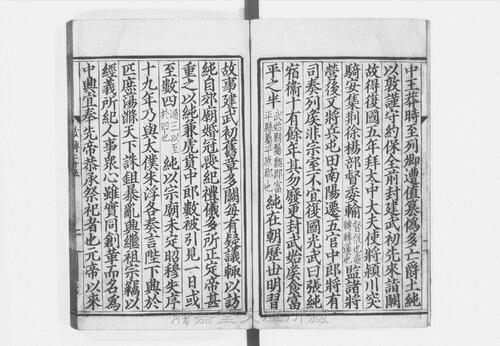 中王莽時至列卿遭值簒偽多亡爵土純
以敦謹守約保全前封建武初先來詣闕
故得復國五年拜太中大夫使將潁川突
騎安集荆徐楊部督委輸監諸將
營後又將兵屯田南陽遷五官中郎將有
司奏列矦非宗室不宜復國光武曰張純
宿衛十有餘年其勿廢更封武始矦食富
平之半武始縣屬魏郡富平縣屬平原郡也純在朝歷世明習
故事建武初舊章多闕每有疑議輒以訪
純自郊廟婚冠喪紀禮儀多所正定帝甚
重之以純兼虎賁中郎將數被引見一日或
至數四過三以至於四也純以宗廟未定昭穆失序
十九年乃與太僕朱浮共奏言陛下興於
匹庶蕩滌天下誅鉏暴亂興繼祖宗竊以
經義所紀人事衆心雖實同創革而名爲
中興宜奉先帝恭承祭祀者也元帝以來